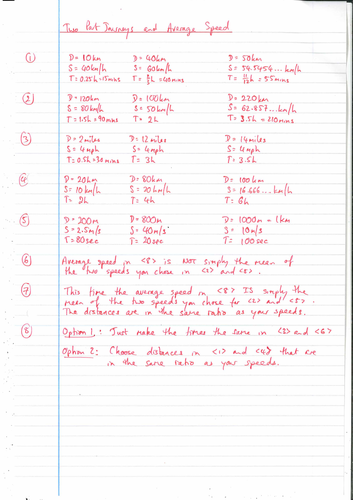 Two Part Journeys and Average Speed
① D= 10km D= 40km D= 50km
S= 40km/h S= 60km/h S= 54.5454... km/h
T= 0.25h=15mins T= 2/3 h = 40mins T= 11/12 h = 55mins
② D= 120km D= 100km D= 220km
S= 80km/h S= 50km/h S= 62.857... km/h
T= 1.5h = 90mins T= 2h T= 3.5h = 210mins
③ D= 2miles D= 12miles D= 14miles
S= 4mph S= 4mph S= 4mph
T= 0.5h = 30mins T= 3h T= 3.5h
④ D= 20km D= 80km D= 100km
S= 10km/h S= 20km/h S= 16.666... km/h
T= 2h T= 4h T= 6h
⑤ D= 200m D= 800m D= 1000m = 1km
S= 2.5m/s S= 40m/s S= 10m/s
T= 80sec T= 20sec T= 100sec
⑥ Average speed in <8> is NOT simply the mean of
the two speeds you chose in <2> and <5>.
⑦ This time the average speed in <8> IS simply the
mean of the two speeds you chose for <2> and <5>.
The distances are in the same ratio as your speeds.
⑧ Option 1: Just make the times the same in <3> and <6>
Option 2: Choose distances in <1> and <4> that are
in the same ratio as your speeds.